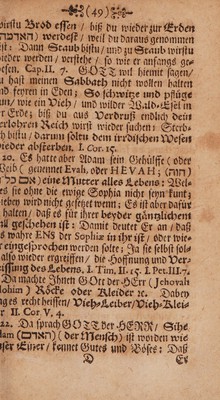 (49)
wirstu Brod essen / biß du wieder zur Erden
(האדמה) werdest / weil du daraus genommen
ist: Dann Staub bistu / und zu Staub wirstu
wieder werden / verstehe / so wie er anfangs ge-
wesen, Cap. II, 7. GOTT wil hiemit sagen /
du hast meinen Sabbath nicht wollen halten
und feyren in Eden; So schwitze und pflüge
nun / wie ein Vieh / und wilder Wald-Esel in
der Erde; biß du aus Verdruß endlich dein
verlohren Reich wirst wieder suchen: Sterb-
bistu / darum soltu dem irrdischen Wesen
wieder absterben. I. Cor. 15.
20. Es hatte aber Adam sein Gehülffe / oder
Weib ( genennet Evah, oder HEVAH; (חוה)
(כל אם) eine Mutter alles Lebens: Wel-
ches sie ohne die ewige Sophia nicht seyn kunt;
wird nicht gesetzet wenn; Es ist aber dafür
halten / daß es für ihrer beyder gänzlichem
Fall geschehen ist: Damit deutet Er an / daß
wahre ENS der Sophiæ in ihr ist / oder wie-
eingesprochen werden solte: Ja sie selbst sol
also wieder ergreiffen / die Hoffnung und Ver-
heissung des Lebens, I. Tim. II. 15. I. Pet. III. 7.
Da machte Ihnen GOtt der HErr (Jehovah
Elohim) Röcke oder Kleider &c. Dabey
es recht heissen / Vieh-Leiber / Vieh-Klei-
der II. Cor. V, 4.
22. Da sprach GOTT der HERR / Sihe
Adam (האדם) der Mensch) ist worden wie
unser Einer / kennet Gutes und Böses: Daß
D
Er